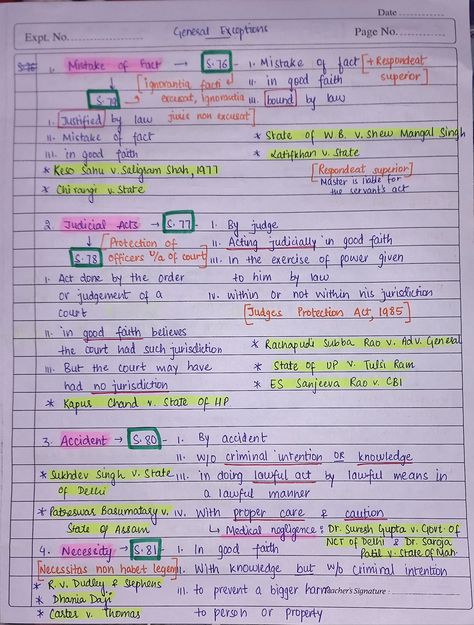 Date
Expt. No.
General Exceptions
Page No.
1. Mistake of fact → S.76 - i. Mistake of fact [+ Respondeat superior]
[ignorantia facti excusat, ignorantia juris non excusat]
ii. in good faith
iii. bound by law
S.79
i. Justified by law
ii. Mistake of fact
iii. in good faith
* State of W.B. v. Shew Mangal Singh
* Latifkhan v. State
* Keso Sahu v. Saligram Shah, 1977
* Chirangi v. State
[Respondeat superior]
Master is liable for the servant's act
2. Judicial Acts → S.77 - i. By judge
[Protection of officers u/a of court]
ii. Acting judicially in good faith
iii. in the exercise of power given to him by law
iv. within or not within his jurisdiction
[Judges Protection Act, 1985]
S.78
i. Act done by the order or judgement of a court
ii. in good faith believes the court had such jurisdiction
iii. But the court may have had no jurisdiction
* Rachapudi Subba Rao v. Adv. General
* State of UP v. Tulsi Ram
* ES Sanjeeva Rao v. CBI
* Kapur Chand v. State of HP
3. Accident → S.80 - i. By accident
ii. w/o criminal intention OR knowledge
iii. in doing lawful act by lawful means in a lawful manner
iv. With proper care & caution
↳ Medical negligence : Dr. Suresh Gupta v. Govt. of NCT of Delhi & Dr. Saroja Patil v. State of Mah.
* Sukhdev Singh v. State of Delhi
* Patreswar Basumatary v. State of Assam
4. Necessity → S.81 - i. In good faith
[Necessitas non habet legem]
ii. With knowledge but w/o criminal intention
iii. to prevent a bigger harm to person or property
* R v. Dudley & Stephens
* Dhania Daji
* Carter v. Thomas
Teacher's Signature :